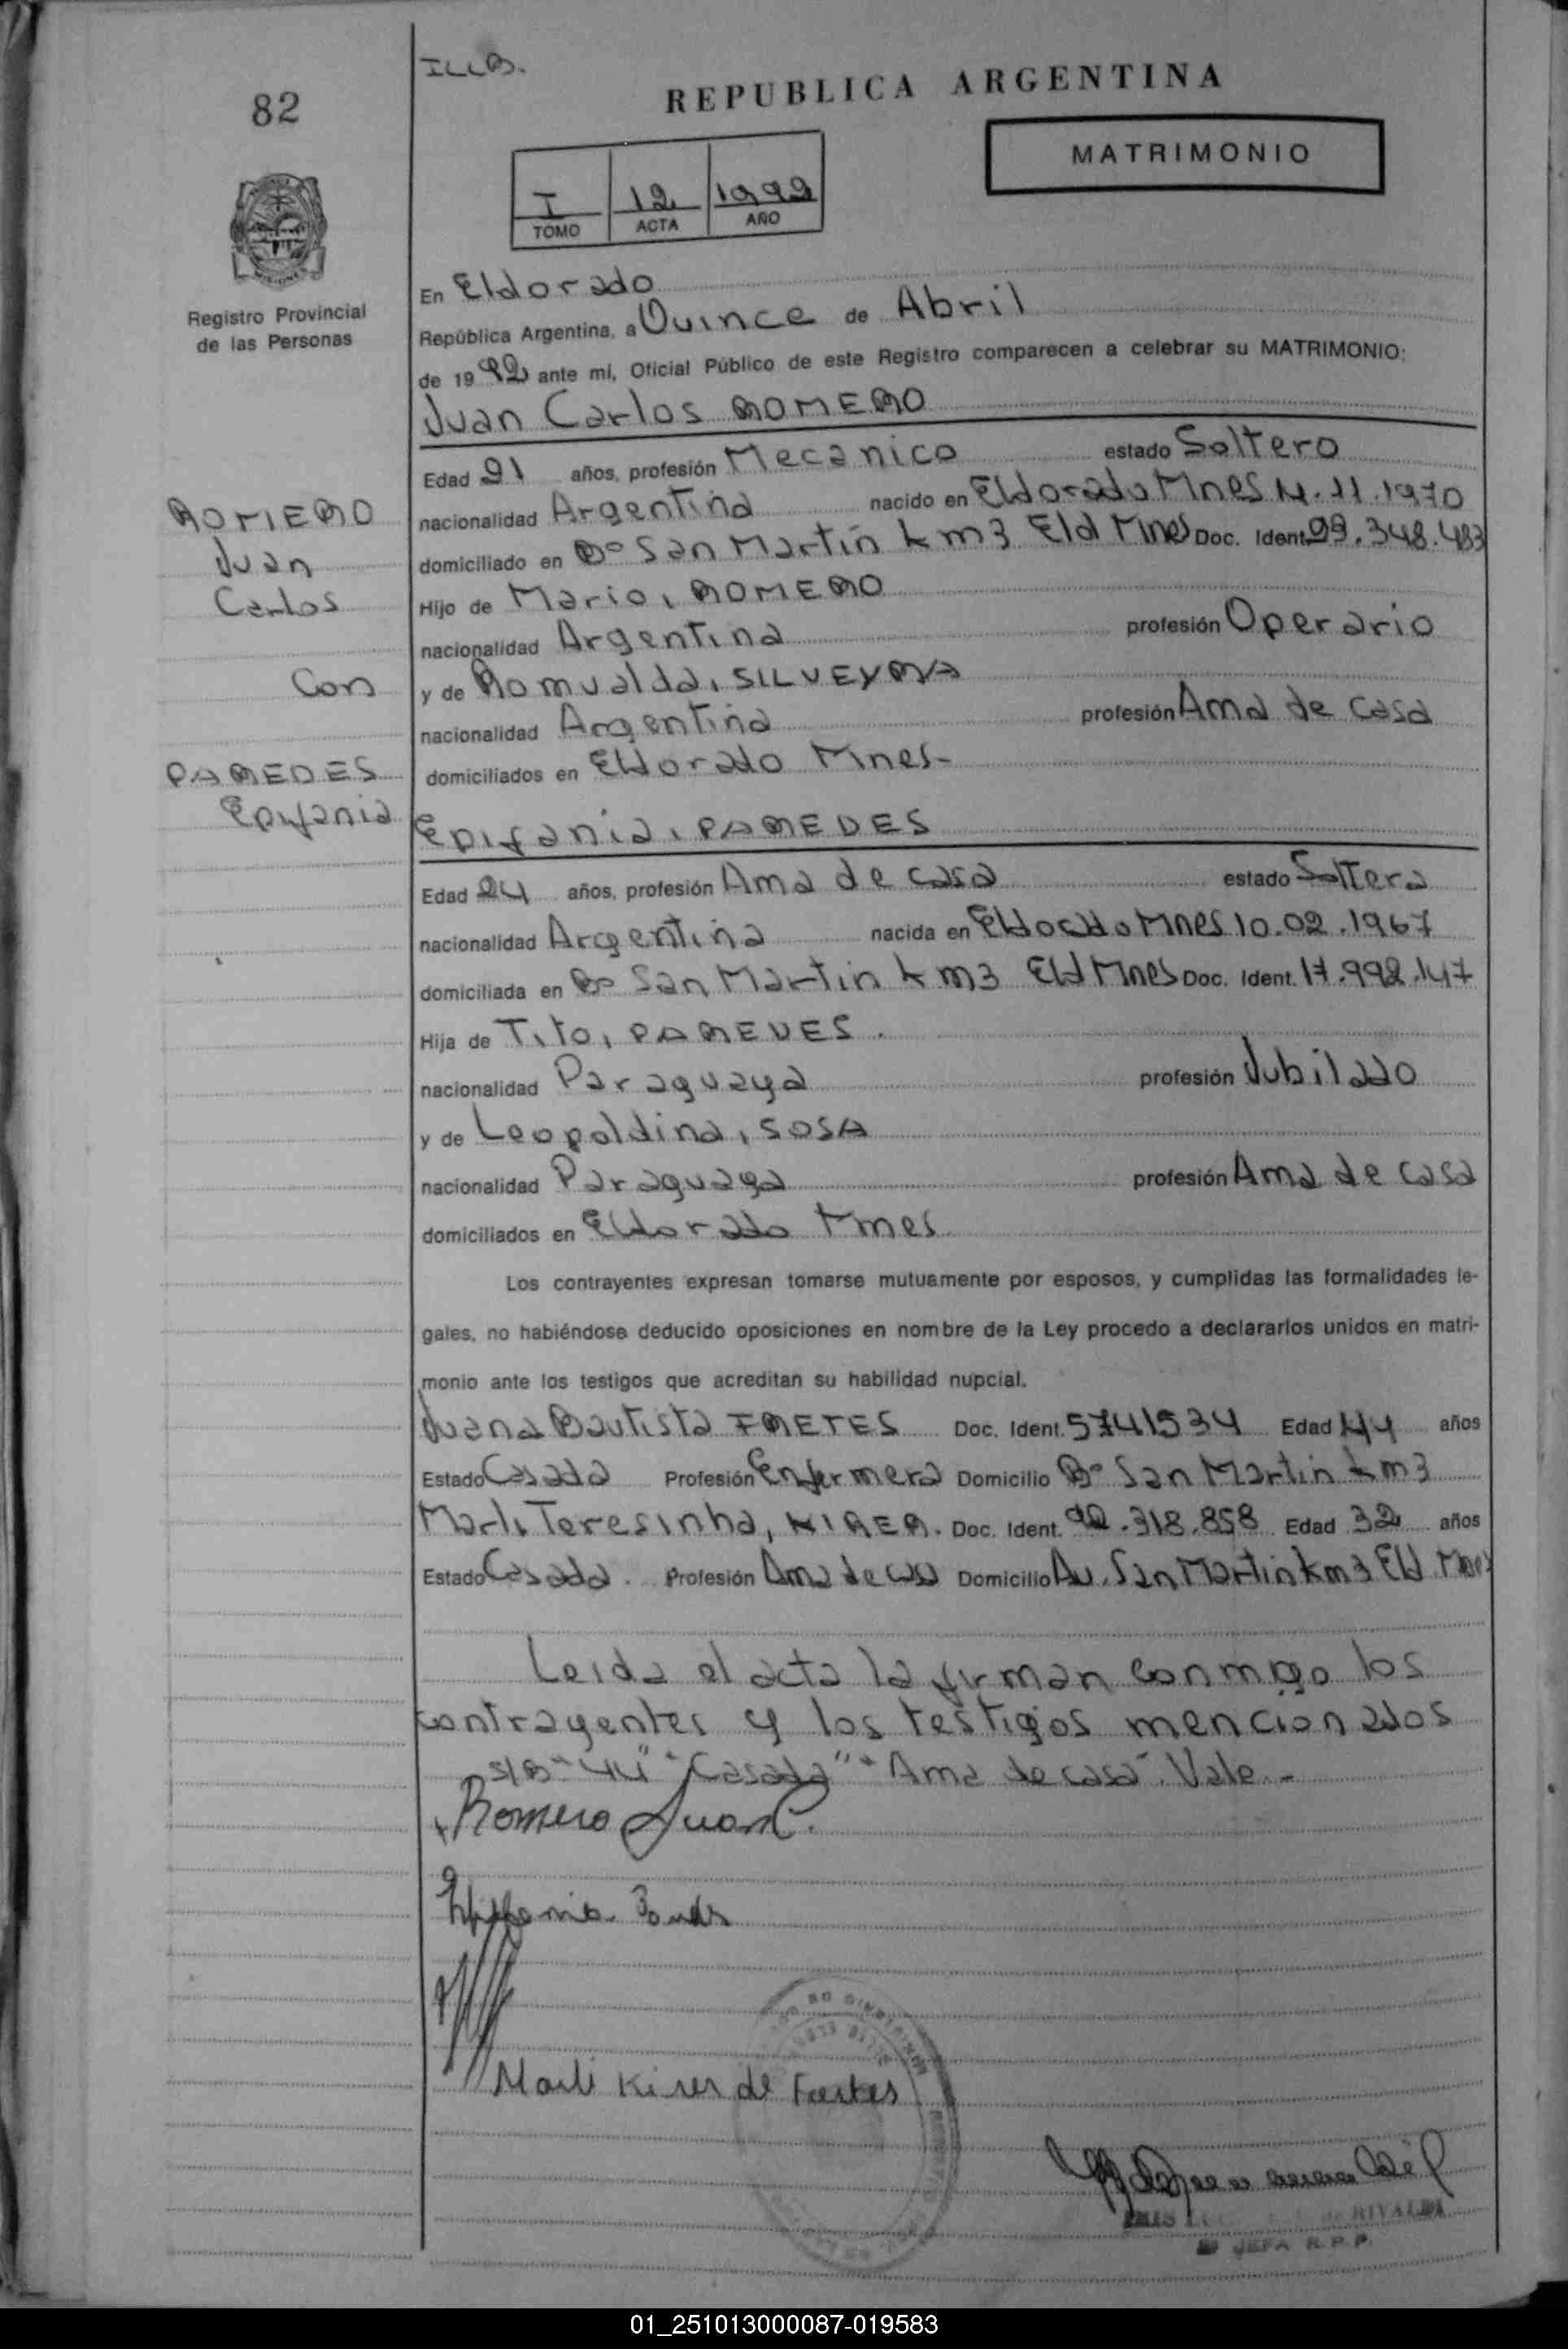 82
ILLB.
REPUBLICA ARGENTINA
MATRIMONIO
I 12 1992
TOMO ACTA AÑO
Registro Provincial
de las Personas
En Eldorado
República Argentina, a Quince de Abril
de 1992 ante mí, Oficial Público de este Registro comparecen a celebrar su MATRIMONIO:
Juan Carlos ROMERO
Edad 21 años, profesión Mecanico estado Soltero
nacionalidad Argentina nacido en Eldorado Mnes 11.1970
domiciliado en Bº San Martin km3 Eld Mnes Doc. Ident. .348.483
Hijo de Mario, ROMERO
nacionalidad Argentina profesión Operario
y de Romualda, SILVEYRA
nacionalidad Argentina profesión Ama de casa
domiciliados en Eldorado Mnes-
ROMERO
Juan
Carlos
Con
PAREDES
Epifania
Epifania, PAREDES
Edad 24 años, profesión Ama de casa estado Soltera
nacionalidad Argentina nacida en Eldorado Mnes 10.02.1967
domiciliada en Bº San Martin km3 Eld Mnes Doc. Ident. 17.992.147
Hija de Tito, PAREDES.
nacionalidad Paraguaya profesión Jubilado
y de Leopoldina, SOSA
nacionalidad Paraguaya profesión Ama de casa
domiciliados en Eldorado Mnes
Los contrayentes expresan tomarse mutuamente por esposos, y cumplidas las formalidades le-
gales, no habiéndose deducido oposiciones en nombre de la Ley procedo a declararlos unidos en matri-
monio ante los testigos que acreditan su habilidad nupcial.
Juana Bautista FRETES Doc. Ident. 5741534 Edad 44 años
Estado Casada Profesión Enfermera Domicilio Bº San Martin km3
Marli Teresinha, KIRER. Doc. Ident. 92.318.858 Edad 32 años
Estado Casada. Profesión Ama de casa Domicilio Av. San Martin km3 Eld. Mnes
Leida el acta la firman conmigo los
contrayentes y los testigos mencionados
S/B "44" "Casada" "Ama de casa". Vale.-
Romero Juan C.
Marli Kirer de Fretes
de RIVALDI
JEFA R.P.P.
01_251013000087-019583